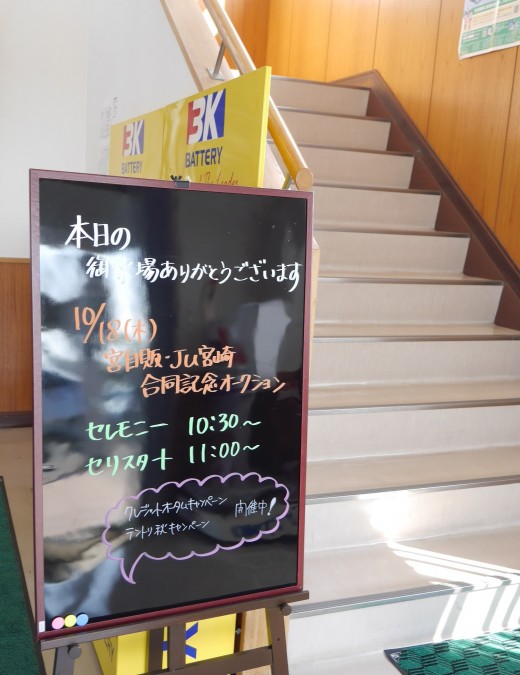 3K
BATTERY
3K
BATTERY
The Leader
本日の
御来場ありがとうございます
10/18(木)
宮自販・JU宮崎
合同記念オークション
セレモニー 10:30～
セリスタート 11:00～
クレジットオータムキャンペーン
テントリ秋キャンペーン
開催中!
3K